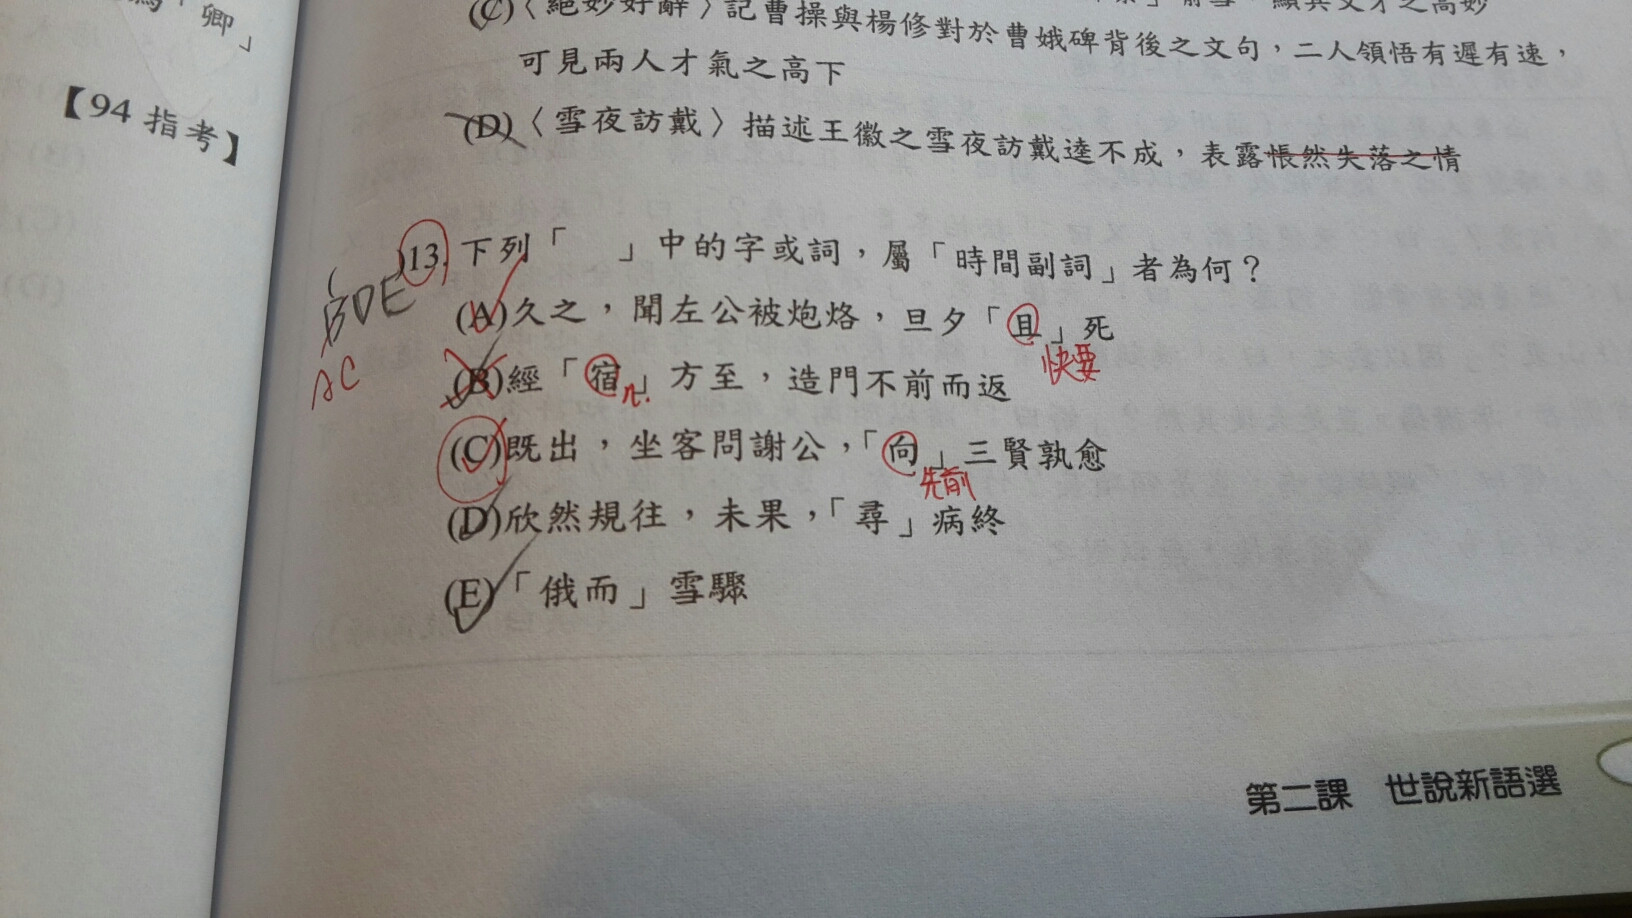 「卿」
【94 指考】
(C)〈絕妙好辭〉記曹操與楊修對於曹娥碑背後之文句，二人領悟有遲有速，
可見兩人才氣之高下
(D)〈雪夜訪戴〉描述王徽之雪夜訪戴逵不成，表露悵然失落之情
( )13.下列「　」中的字或詞，屬「時間副詞」者為何？
BDE
AC
(A)久之，聞左公被炮烙，旦夕「且」死
快要
(B)經「宿」方至，造門不前而返
n.
(C)既出，坐客問謝公，「向」三賢孰愈
先前
(D)欣然規往，未果，「尋」病終
(E)「俄而」雪驟
第二課 世說新語選